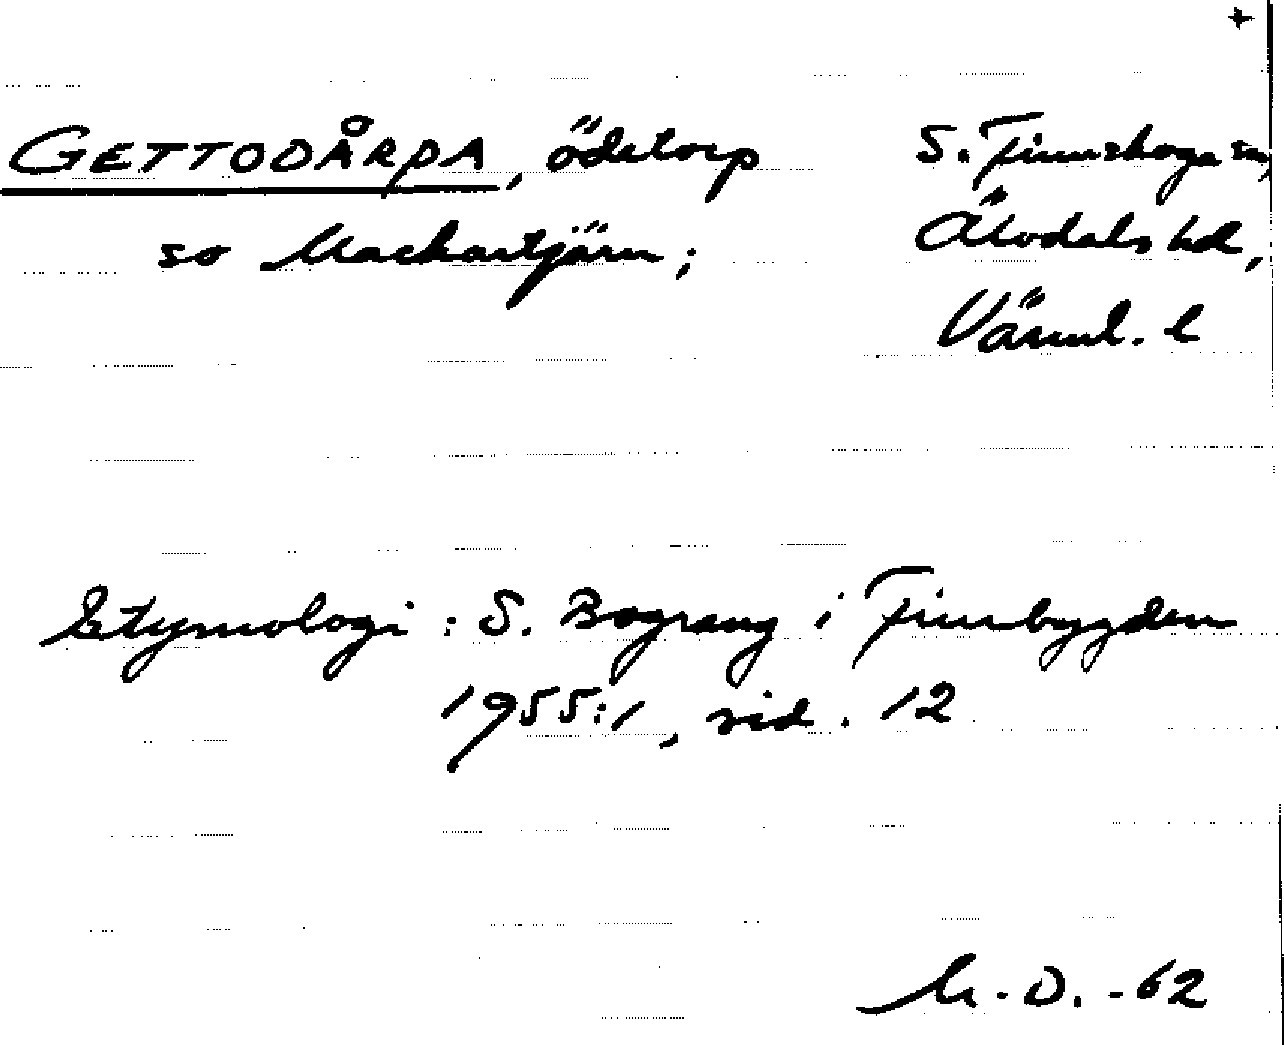 +
GETTODÅRPA, ödetorp
S. Finnskoga sn,
so Mackartjärn;
Älvdals hd,
Värml. l
Etymologi : S. Bograng i Finnbygden
1955:1, sid. 12
M. O. -62